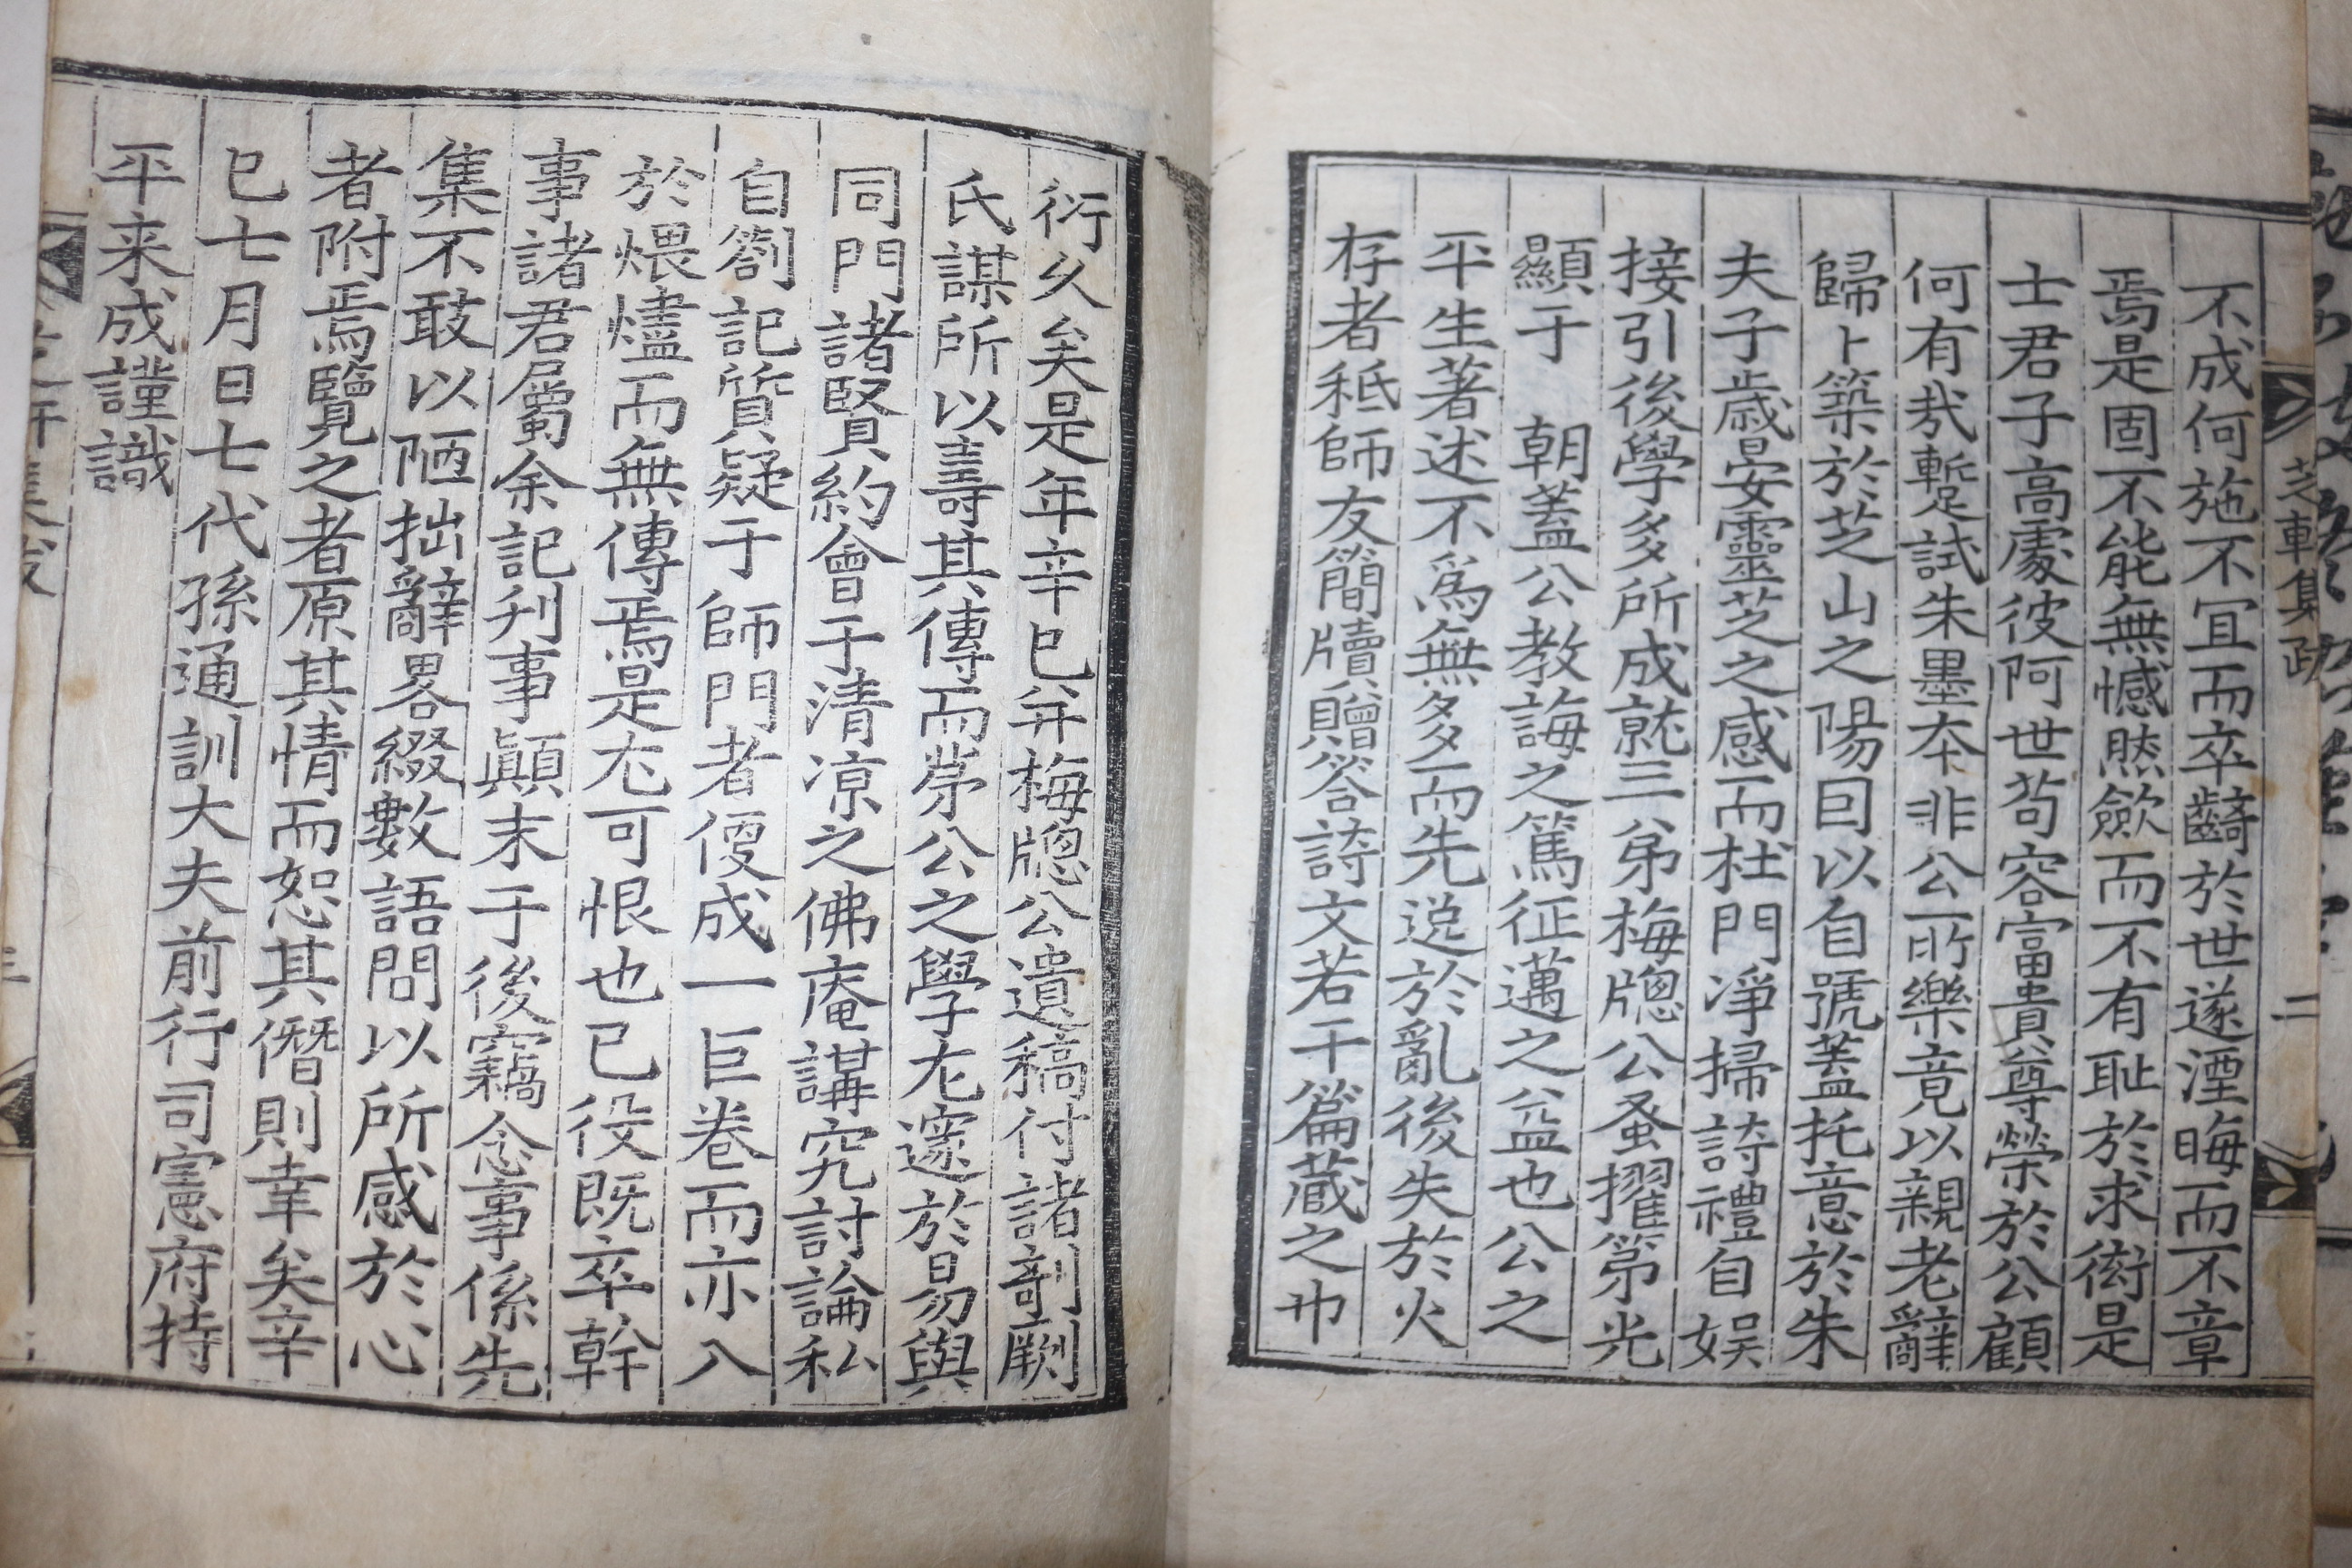 不成何施不宜而卒齮於世遂湮晦而不章
焉是固不能無憾然歉而不有耻於求衒是
士君子高處彼阿世苟容富貴尊榮於公顧
何有㢤蹔試朱墨夲非公所樂竟以親老辭
歸卜築於芝山之陽囙以自號蓋托意於朱
夫子歲晏靈芝之感而杜門淨掃詩禮自娱
接引後學多所成就三弟梅牕公蚤擢第光
顯于　朝蓋公教誨之篤征邁之益也公之
平生著述不爲無多而先逸於亂後失於火
存者秪師友簡牘贈答詩文若干篇蔵之巾
芝軒集跋
二
衍久矣是年辛巳并梅牕公遺稿付諸剞劂
氏謀所以壽其傳而第公之學尤邃於易與
同門諸賢約會于清凉之佛庵講究討論私
自劄記質疑于師門者便成一巨卷而亦入
於煨燼而無傳焉是尤可恨也已役既卒幹
事諸君屬余記刋事顚末于後竊念事係先
集不敢以陋拙辭畧綴數語間以所感於心
者附焉覽之者原其情而恕其僭則幸矣辛
巳七月日七代孫通訓大夫前行司憲府持
平来成謹識